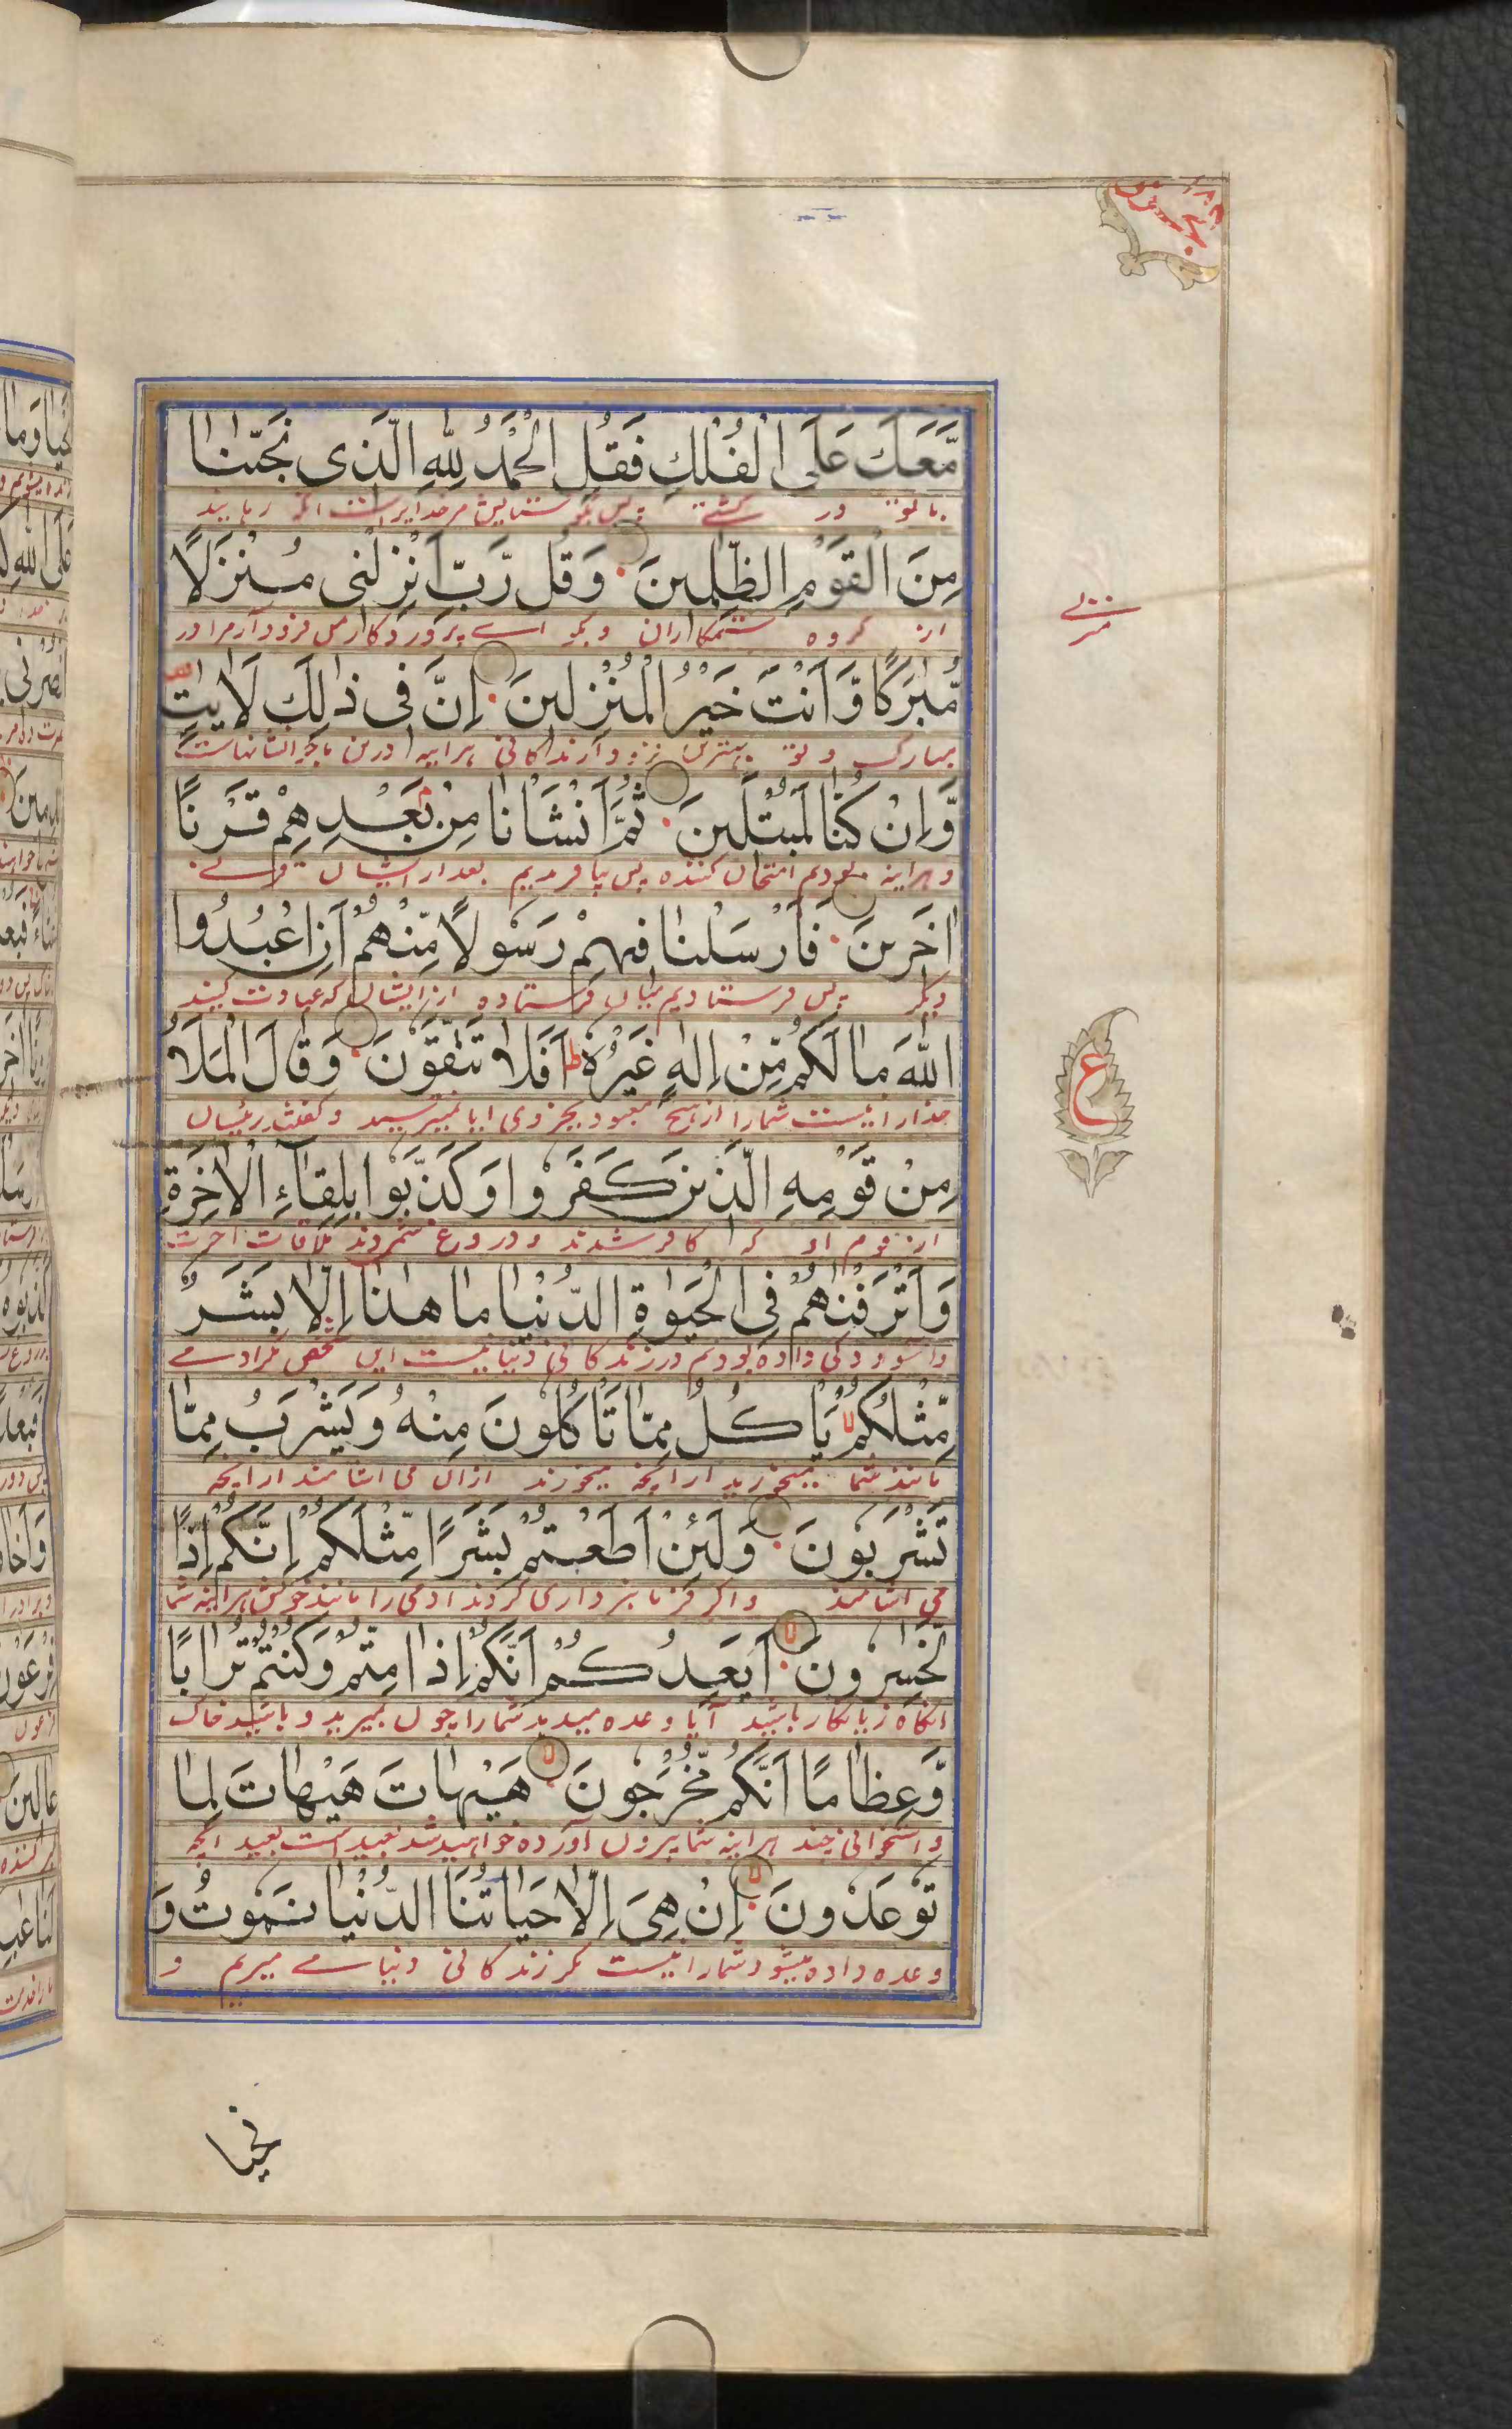 مَّعَكَ عَلَى الْفُلْكِ فَقُلِ الْحَمْدُ لِلّٰهِ الَّذِی نَجّٰىنَا
با تو در کشتی پس بگو ستایش مر خدایراست آنکه رهانید
مِنَ الْقَوْمِ الظّٰلِمِینَ وَقُل رَّبِّ اَنْزِلْنِی مُنْزَلًا
از گروه ستمکاران و بگو اے پروردگار من فرود آر مرا در
مُّبٰرَكًا وَّاَنْتَ خَیْرُ الْمُنْزِلِینَ اِنَّ فِی ذٰلِكَ لَاٰیٰتٍ
مبارک و تو بهترین فرود آرندگانی هرآینه درین ماجرا نشانهاست
وَّاِنْ كُنَّا لَمُبْتَلِینَ ثُمَّ اَنْشَاْنَا مِنْ بَعْدِهِمْ قَرْنًا
و هراینه بودیم امتحان کننده پس بیافریدیم بعد از ایشان قرنے
اٰخَرِینَ فَاَرْسَلْنَا فِیهِمْ رَسُولًا مِّنْهُمْ اَنِ اعْبُدُوا
دیگر پس فرستادیم میان فرستاده از ایشان که عبادت کنید
اللّٰهَ مَا لَكُمْ مِّنْ اِلٰهٍ غَیْرُهٗ ط اَفَلَا تَتَّقُونَ وَقَالَ الْمَلَاُ
خدا را نیست شما را از هیچ معبود بجز وی ایا نمیترسید و گفتند رئیسان
مِنْ قَوْمِهِ الَّذِینَ كَفَرُوا وَكَذَّبُوا بِلِقَآءِ الْاٰخِرَةِ
از قوم او که کافر شدند و دروغ شمردند ملاقات اخرت
وَاَتْرَفْنٰهُمْ فِی الْحَیٰوةِ الدُّنْیَا مَا هٰذَا اِلَّا بَشَرٌ
و آسودگی داده بودیم در زندگانی دنیا نیست این شخص مگر ادمے
مِّثْلُكُمْ لا یَاْكُلُ مِمَّا تَاْكُلُونَ مِنْهُ وَیَشْرَبُ مِمَّا
مانند شما میخورید از آنچه میخورند ازان می اشامند از آنچه
تَشْرَبُونَ وَلَئِنْ اَطَعْتُمْ بَشَرًا مِّثْلَكُمْ اِنَّكُمْ اِذًا
می اشامند و اگر فرمانبرداری کردند ادمی را مانند خویش هراینه شما
لَّخٰسِرُونَ لا اَیَعِدُكُمْ اَنَّكُمْ اِذَا مِتُّمْ وَكُنْتُمْ تُرَابًا
انگاه زیانکار باشید آیا وعده میدهد شما را چون بمیرید و باشید خاک
وَّعِظَامًا اَنَّكُمْ مُّخْرَجُونَ لا هَیْهَاتَ هَیْهَاتَ لِمَا
و استخوانی چند هراینه شما بیرون آورده خواهید شد بعید است بعید انچه
تُوعَدُونَ لا اِنْ هِیَ اِلَّا حَیَاتُنَا الدُّنْیَا نَمُوتُ وَ
وعده داده میشود شما را نیست مگر زندگانی دنیا مے میریم و
ع
نحیا